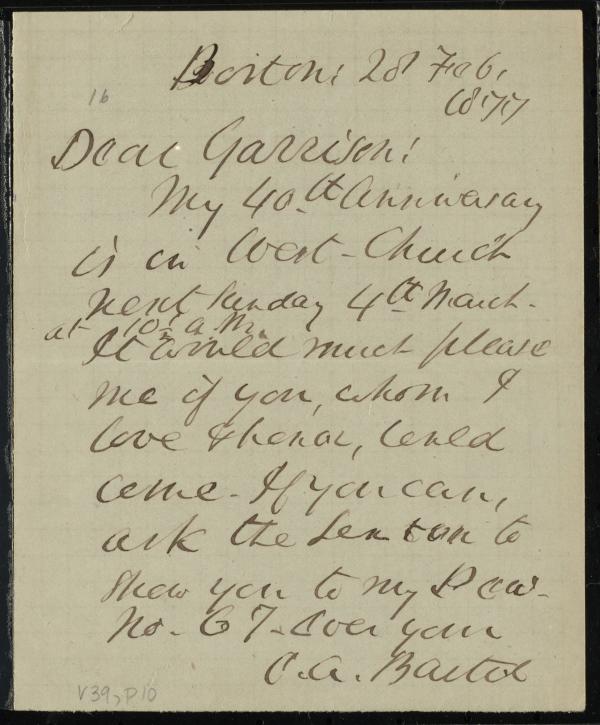 Boston: 28 Feb.
1877
16
Dear Garrison:
My 40th Anniversary
is in West-Church
next Sunday 4th March-
at 10½ a.m.
It would much please
me if you, whom I
love & honor, could
come. If you can,
ask the Sexton to
show you to my Pew-
No. 67- Ever yours
C. A. Bartol
V39, p10